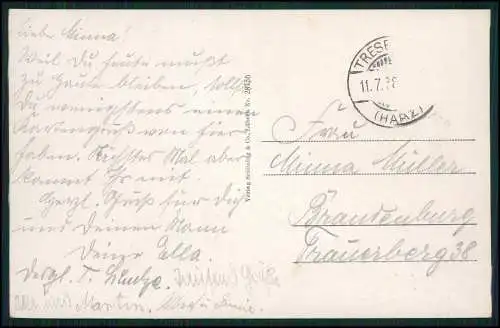 Liebe Minna!
Weil Du heute mußt
zu Hause bleiben, sollst
Du wenigstens einen
Kartengruß von hier
haben. Nächstes Mal aber
kommst Du mit.
Herzl. Gruß für Dich
und Deinen Mann
Deine Ella.
Desgl. T.
Martin.
Verlag
TRESE
11.7.38
(HARZ)
Frau
Minna Müller
Brandenburg
Trauerberg 38